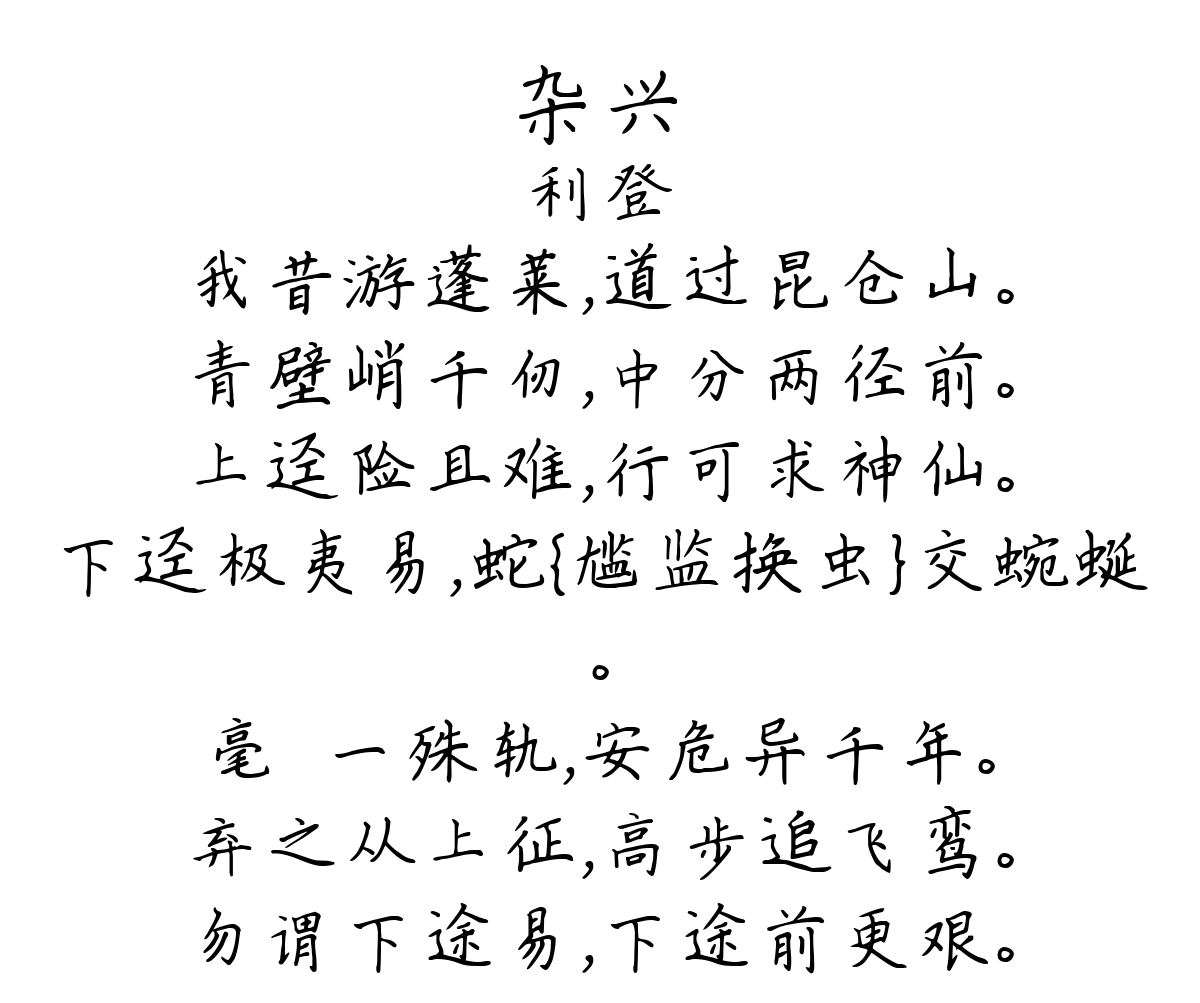 杂兴
利登
我昔游蓬莱,道过昆仑山。
青壁峭千仞,中分两径前。
上迳险且难,行可求神仙。
下迳极夷易,蛇{尴监换虫}交蜿蜒
。
毫 一殊轨,安危异千年。
弃之从上征,高步追飞鸾。
勿谓下途易,下途前更艰。